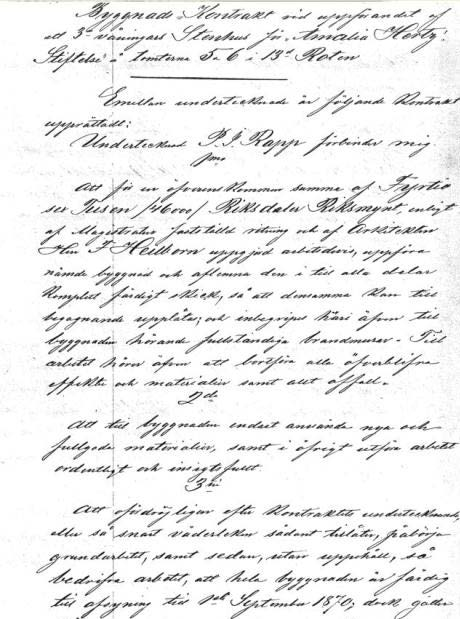 Byggnads-Kontrakt vid uppförandet af
ett 3ne våningars Stenhus för "Amalia Hertz"
Stiftelse å tomterna 5 & 6 i 13d Roten
Emellan undertecknade är följande Kontrakt
upprättadt:
Undertecknad P. J. Rapp förbinder mig
1mo
Att för en öfverenskommen summa af Fyrtio
sex Tusen /46000/ Riksdaler Riksmynt, enligt
af Magistraten fastställd ritning och af Arkitekten
Herr F Heilborn uppgjord arbetsdevis, uppföra
nämde byggnad och aflemna den i till alla delar
komplett färdigt skick, så att densamma kan till
begagnande upplåtas; och inbegripes häri äfven till
byggnaden hörande fullständiga brandmurar. Till
arbetet hörer äfven att bortföra alla öfverblifna
effekter och materialier samt allt affall.
2do
Att till byggnaden endast använda nya och
fullgoda materialier, samt i öfrigt utföra arbetet
ordentligt och insigtsfullt
3tio
Att ofördröjligen efter Kontraktets undertecknande,
eller så snart väderleken sådant tillåter, påbörja
grundarbetet, samt sedan, utan uppehåll, så
bedrifva arbetet, att hela byggnaden är färdig
till afsyning till 1sta September 1870; dock gäller